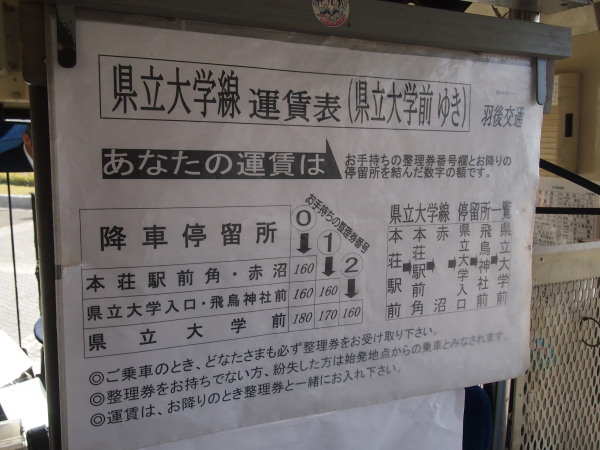 県立大学線 運賃表(県立大学前 ゆき)
羽後交通
あなたの運賃は
お手持ちの整理券番号欄とお降りの
停留所を結んだ数字の額です。
お手持ちの整理券番号
降車停留所 0 1 2
本荘駅前角・赤沼 160
県立大学入口・飛鳥神社前 160 160
県立大学前 180 170 160
県立大学線 停留所一覧
本荘駅前
本荘駅前角
赤沼
県立大学入口
飛鳥神社前
県立大学前
◎ご乗車のとき、どなたさまも必ず整理券をお受け取り下さい。
◎整理券をお持ちでない方、紛失した方は始発地点からの乗車とみなされます。
◎運賃は、お降りのとき整理券と一緒にお入れ下さい。